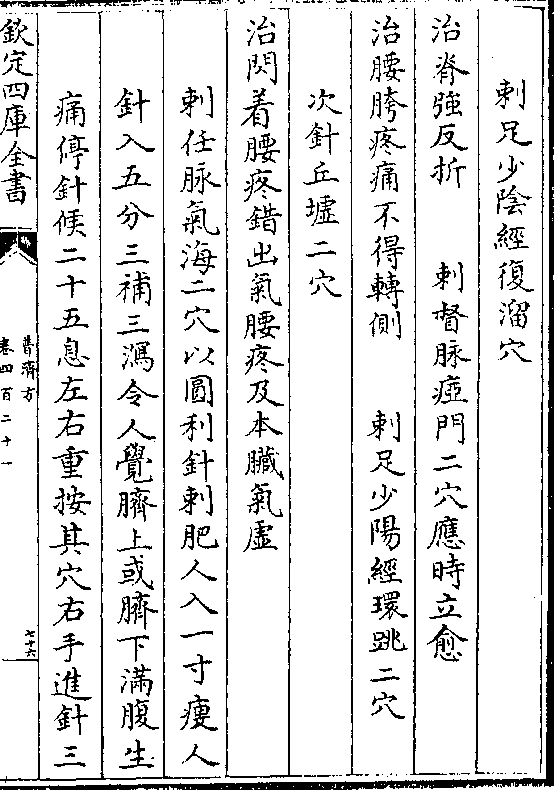 刺足少陰經復溜穴
治脊強反折　刺督脉瘂門二穴應時立愈
治腰胯疼痛不得轉側　刺足少陽經環跳二穴
次針丘墟二穴
治閃着腰疼錯出氣腰疼及本臟氣虛
刺任脉氣海二穴以圓利針刺肥人入一寸瘦人
針入五分三補三瀉令人覺臍上或臍下滿腹生
痛停針候二十五息左右重按其穴右手進針三
欽定四庫全書
普濟方
卷四百二十一
七十六